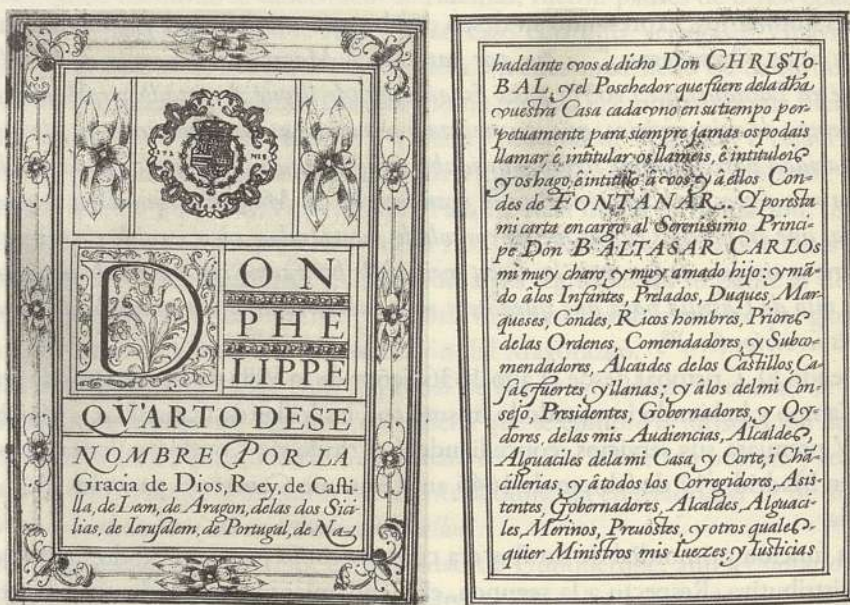 DON
PHE
LIPPE
QVARTO DESE
NOMBRE POR LA
Gracia de Dios, Rey, de Casti-
lla, de Leon, de Aragon, delas dos Sici-
lias, de Ierusalem, de Portugal, de Na-
hadelante vos el dicho Don CHRISTO-
BAL, y el Posehedor que fuere dela dha
vuestra Casa cada vno en su tiempo per-
petuamente para siempre jamas os podais
llamar ê, intitular, os llameis, ê intituleis
y os hago, ê intitulo â vos, y â ellos Con-
des de FONTANAR. Y por esta
mi carta encargo al Serenissimo Princi-
pe Don BALTASAR CARLOS
mi muy charo, y muy amado hijo: y mã-
do âlos Infantes, Prelados, Duques, Mar-
queses, Condes, Ricos hombres, Priores
delas Ordenes, Comendadores, y Subco-
mendadores, Alcaides delos Castillos, Ca-
sas fuertes, y llanas; y âlos del mi Con-
sejo, Presidentes, Gobernadores, y Oy-
dores, delas mis Audiencias, Alcaldes,
Alguaciles dela mi Casa, y Corte, i Chã-
cillerias, y â todos los Corregidores, Asis-
tentes, Gobernadores, Alcaldes, Alguaci-
les, Merinos, Prevostes, y otros quales-
quier Ministros mis Iuezes, y Iusticias